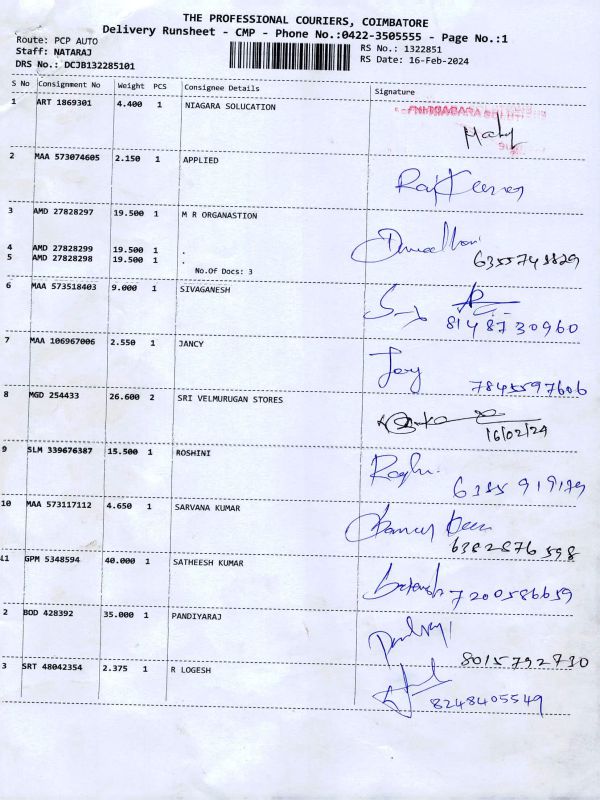 THE PROFESSIONAL COURIERS, COIMBATORE
Delivery Runsheet - CMP - Phone No.:0422-3505555 - Page No.:1
Route: PCP AUTO
Staff: NATARAJ
DRS No.: DCJB132285101
RS No.: 1322851
RS Date: 16-Feb-2024
S No Consignment No Weight PCS Consignee Details Signature
1 ART 1869301 4.400 1 NIAGARA SOLUCATION
2 MAA 573074605 2.150 1 APPLIED
3 AMD 27828297 19.500 1 M R ORGANASTION
4 AMD 27828299 19.500 1 .
5 AMD 27828298 19.500 1 .
No.Of Docs: 3
6355743829
6 MAA 573518403 9.000 1 SIVAGANESH
8148730960
7 MAA 106967006 2.550 1 JANCY
7845597606
8 MGD 254433 26.600 2 SRI VELMURUGAN STORES
16/02/24
9 SLM 339676387 15.500 1 ROSHINI
6385 919179
10 MAA 573117112 4.650 1 SARVANA KUMAR
6382876598
11 GPM 5348594 40.000 1 SATHEESH KUMAR
7200586659
2 BOD 428392 35.000 1 PANDIYARAJ
8015792730
3 SRT 48042354 2.375 1 R LOGESH
8248405549